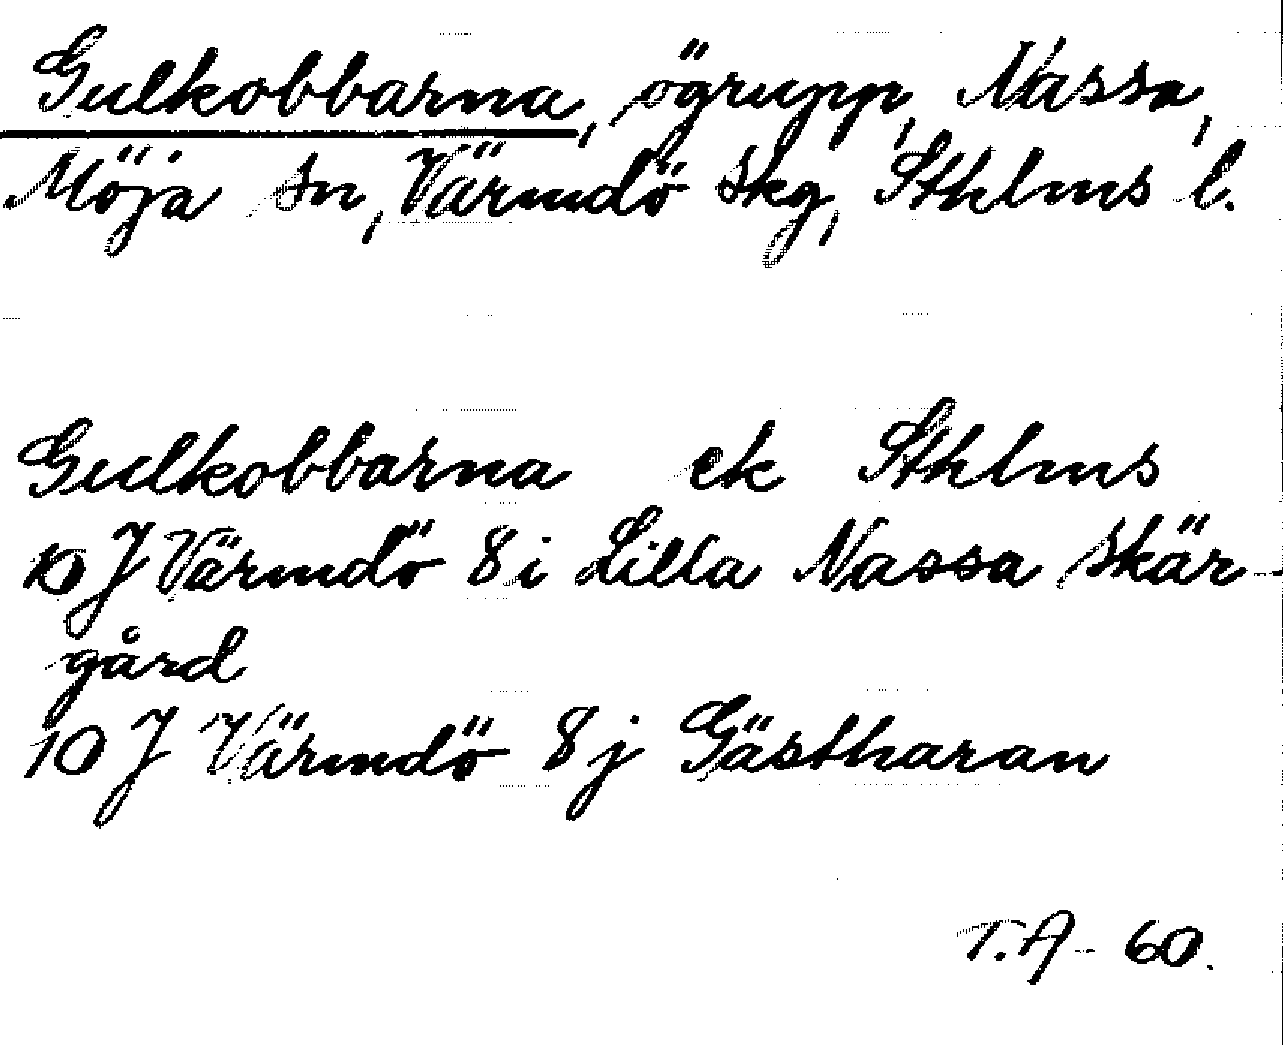 Gulkobbarna, ögrupp, Nassa,
Möja sn, Värmdö skg, Sthlms l.
Gulkobbarna ek Sthlms
10 J Värmdö 8 i Lilla Nassa skär-
gård
10 J Värmdö 8 j Gästharan
T.A- 60.